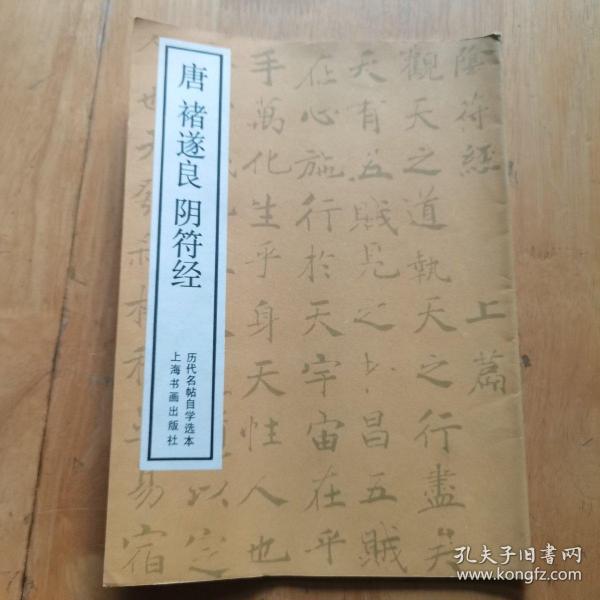 唐 褚遂良 阴符经
历代名帖自学选本
上海书画出版社
陰符經 上篇
觀天之道執天之行盡矣
天有五賊見之者昌五賊
在心施行於天宇宙在乎
手萬化生乎身天性人也
孔夫子旧书网
www.kongfz.com